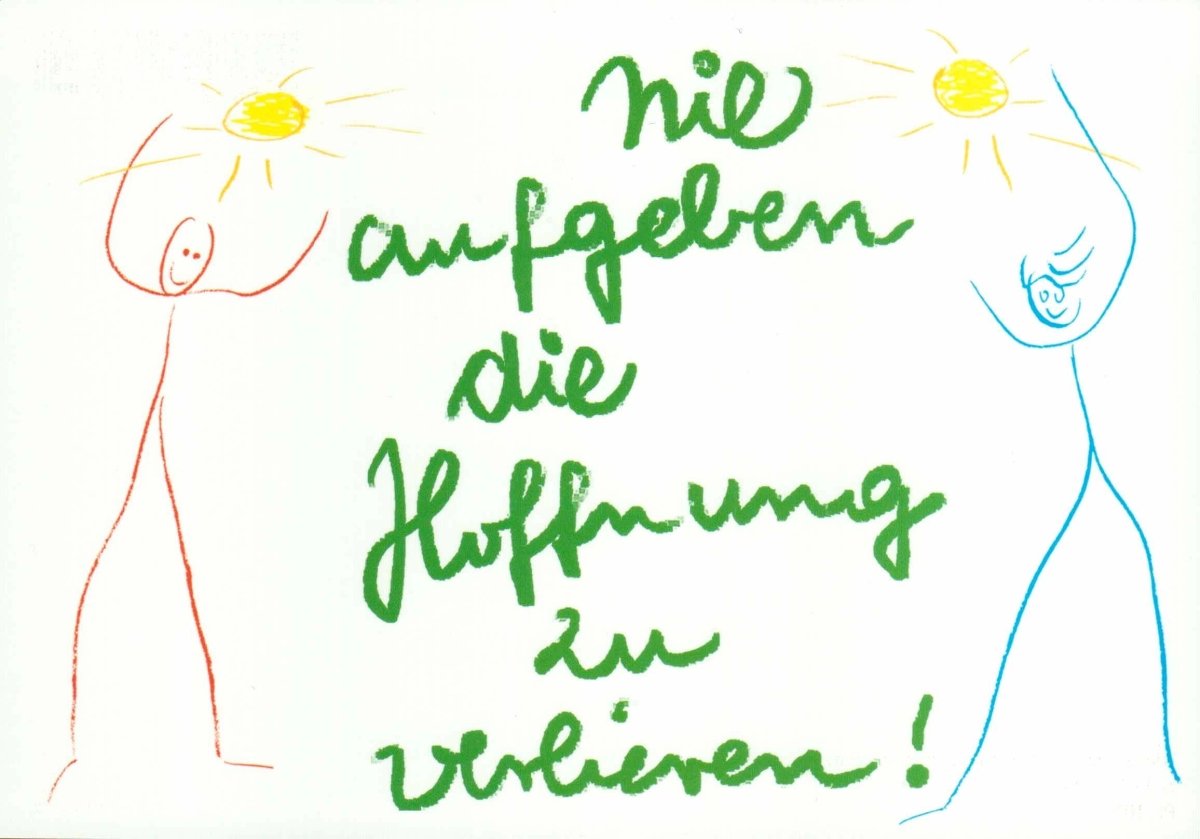 nie
aufgeben
die
Hoffnung
zu
verlieren!